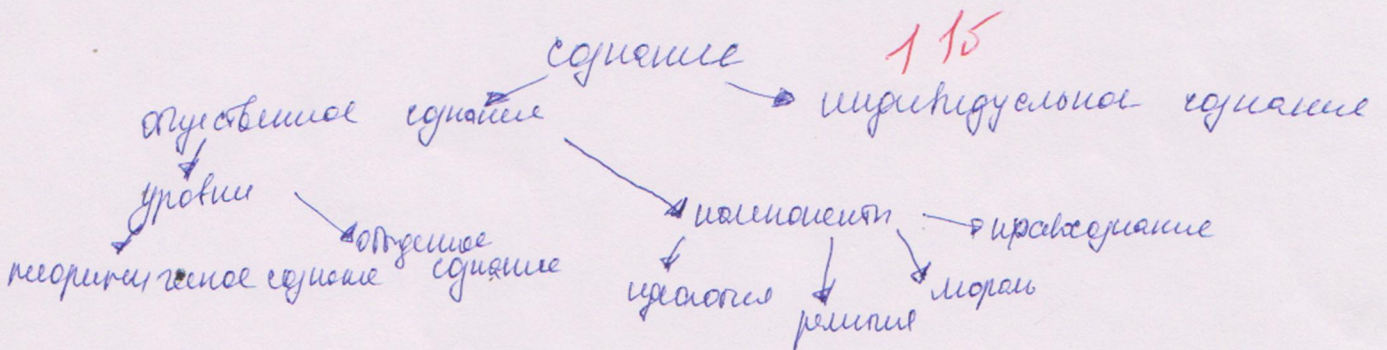 сознание
1 15
общественное сознание индивидуальное сознание
уровни
компоненты правосознание
теоритическое сознание обыденное сознание
идеология религия мораль